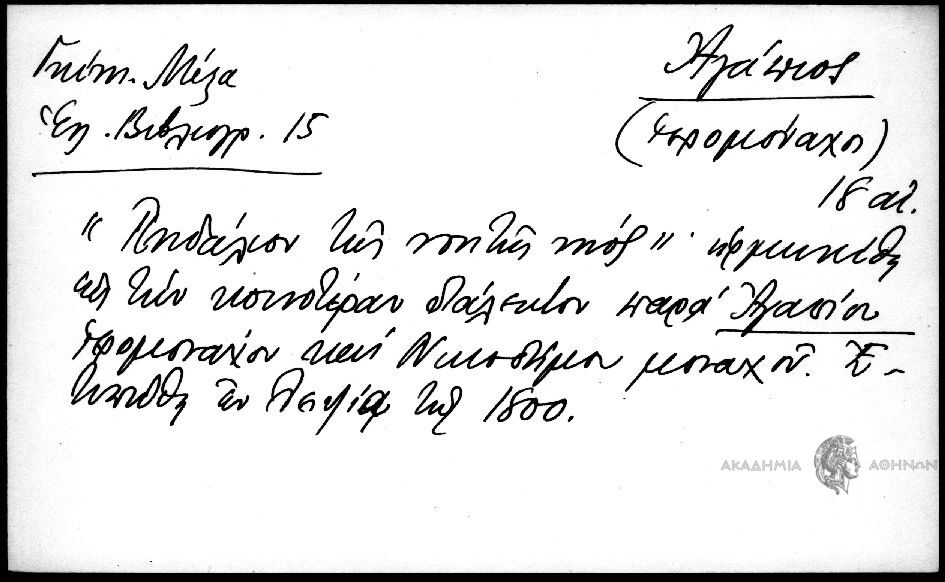 Γκίνη. Μέξα
Ἑλ. Βιβλιογρ. 15
Ἀγάπιος
(ἱερομόναχος)
18 αἰ.
"Πηδάλιον τῆς νοητῆς νηός" ἑρμηνευθὲν
εἰς τὴν κοινοτέραν διάλεκτον παρὰ Ἀγαπίου
ἱερομονάχου καὶ Νικοδήμου μοναχοῦ. Ἐ-
τυπώθη ἐν Λειψίᾳ τῷ 1800.
ΑΚΑΔΗΜΙΑ ΑΘΗΝΩΝ